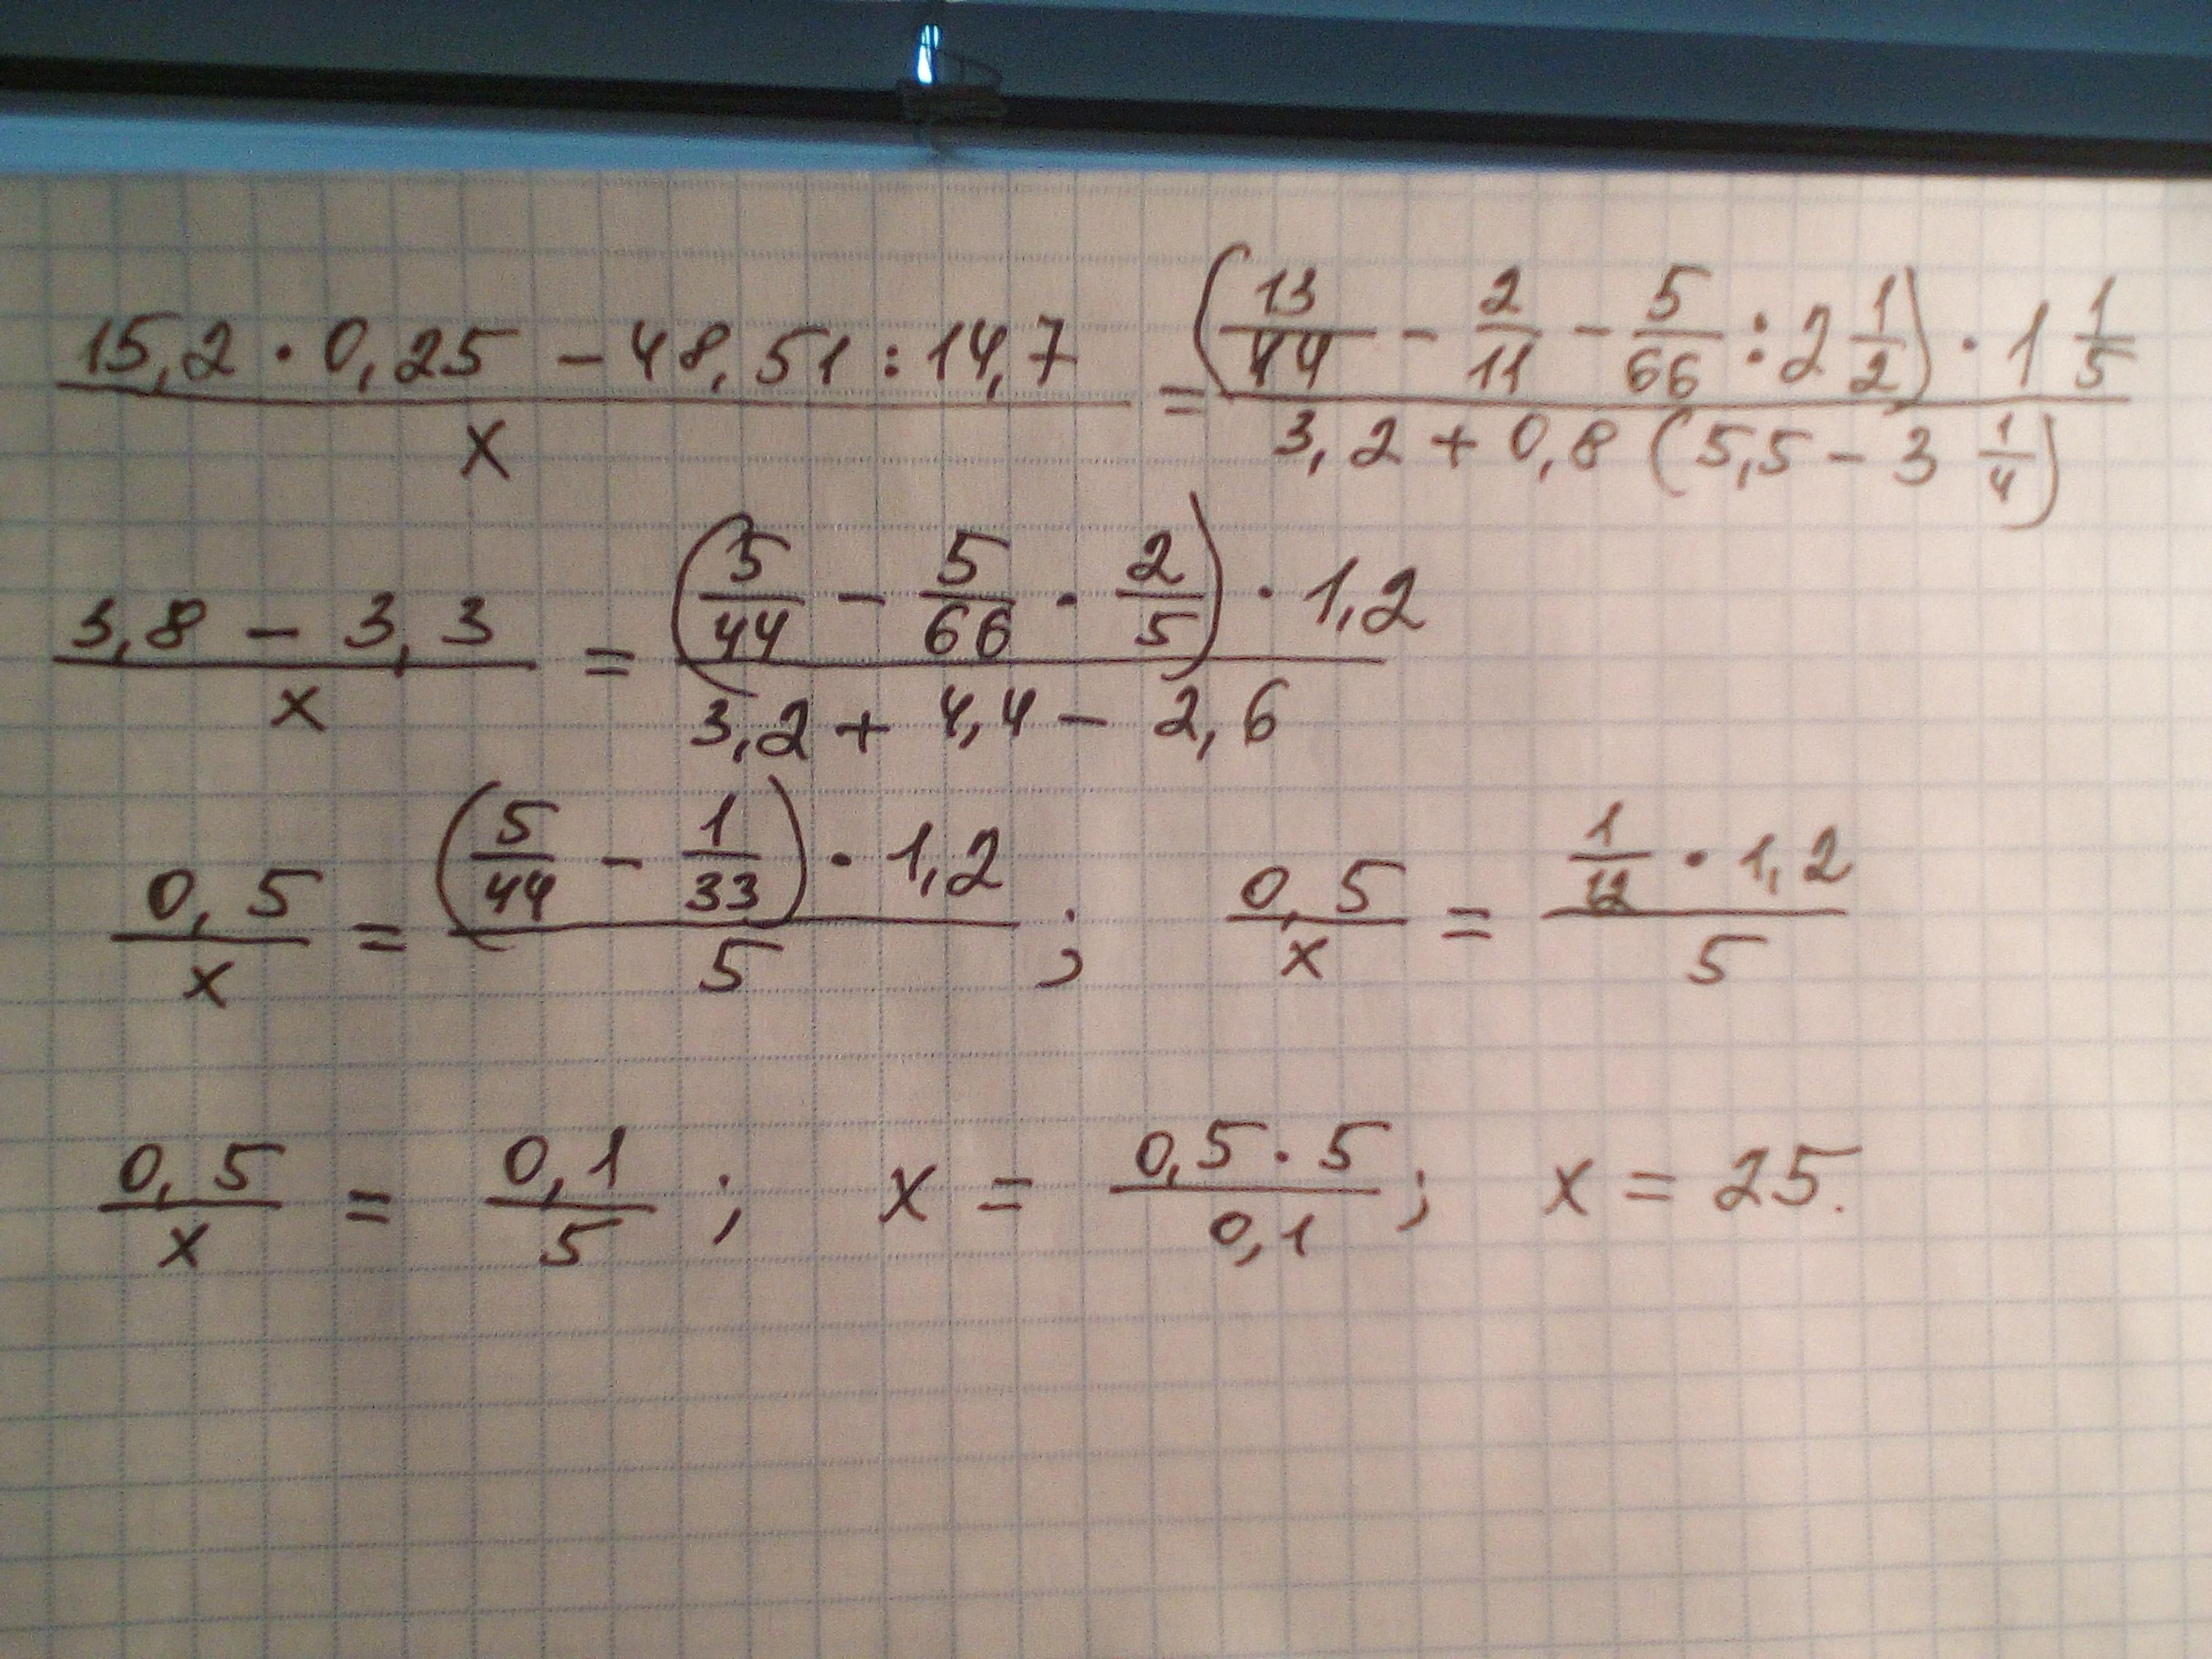 (15,2 · 0,25 − 48,51 : 14,7)/x = ((13/44 − 2/11 − 5/66 : 2 1/2) · 1 1/5)/(3,2 + 0,8 (5,5 − 3 1/4))
(3,8 − 3,3)/x = ((5/44 − 5/66 · 2/5) · 1,2)/(3,2 + 4,4 − 2,6)
0,5/x = ((5/44 − 1/33) · 1,2)/5 ; 0,5/x = (1/12 · 1,2)/5
0,5/x = 0,1/5 ; x = (0,5 · 5)/0,1 ; x = 25.